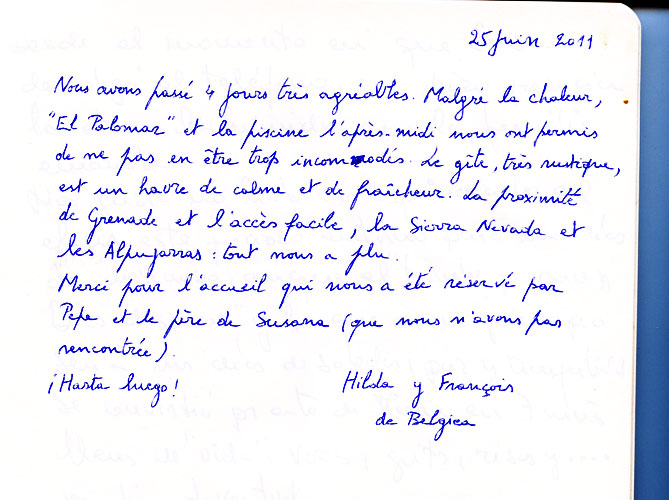 25 juin 2011
Nous avons passé 4 jours très agréables. Malgré la chaleur,
"El Palomar" et la piscine l'après-midi nous ont permis
de ne pas en être trop incommodés. Le gîte, très rustique,
est un havre de calme et de fraîcheur. La proximité
de Grenade et l'accès facile, la Sierra Nevada et
les Alpujarras : tout nous a plu.
Merci pour l'accueil qui nous a été réservé par
Pepe et le père de Susana (que nous n'avons pas
rencontrée).
¡Hasta luego! Hilda y François
de Belgica